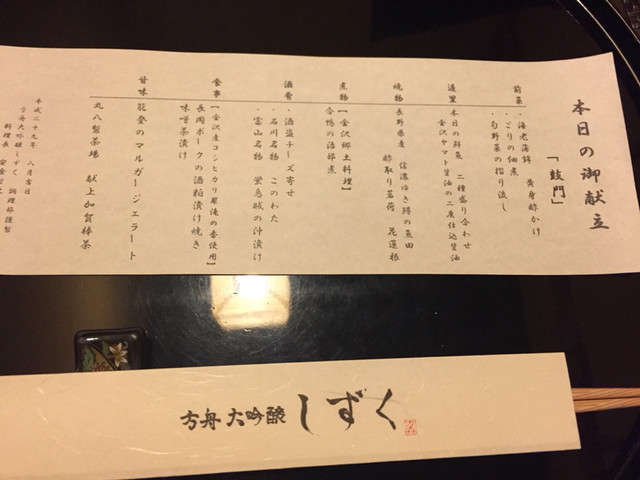 本日の御献立
「鼓門」
前菜
・海老蒲鉾 黄身酢かけ
・ごりの佃煮
・旬野菜の摺り流し
造里
本日の鮮魚 二種盛り合わせ
金沢ヤマト醤油の二度仕込醤油
焼物
長野県産 信濃ゆき鱒の魚田
酢取り茗荷 花蓮根
煮物
【金沢郷土料理】
合鴨の治部煮
酒肴
・酒盗チーズ寄せ
・石川名物 このわた
・富山名物 蛍烏賊の沖漬け
食事
【金沢産コシヒカリ
使用】
長岡ポークの酒粕漬け焼き
味噌茶漬け
甘味
能登のマルガージェラート
丸八製茶場 献上加賀棒茶
平成二十九年 八月吉日
方舟大吟醸しずく 調理部謹製
料理長
方舟大吟醸 しずく